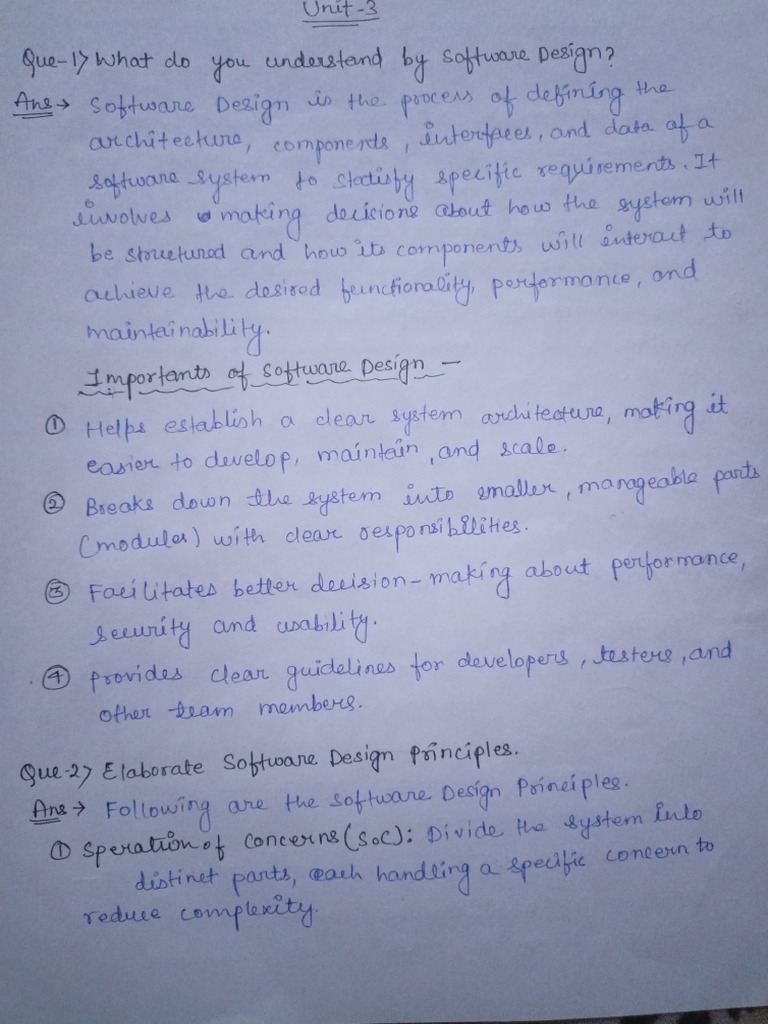 Unit-3
Que-1> What do you understand by Software Design?
Ans → Software Design is the process of defining the
architecture, components, interfaces, and data of a
software system to statisfy specific requirements. It
involves making decisions about how the system will
be structured and how its components will interact to
achieve the desired functionality, performance, and
maintainability.
Importants of Software Design -
① Helps establish a clear system architecture, making it
easier to develop, maintain, and scale.
② Breaks down the system into smaller, manageable parts
(modules) with clear responsibilities.
③ Facilitates better decision-making about performance,
security and usability.
④ Provides clear guidelines for developers, testers, and
other team members.
Que-2> Elaborate Software Design Principles.
Ans → Following are the Software Design Principles.
① Speration of Concerns (SoC): Divide the system into
distinct parts, each handling a specific concern to
reduce complexity.